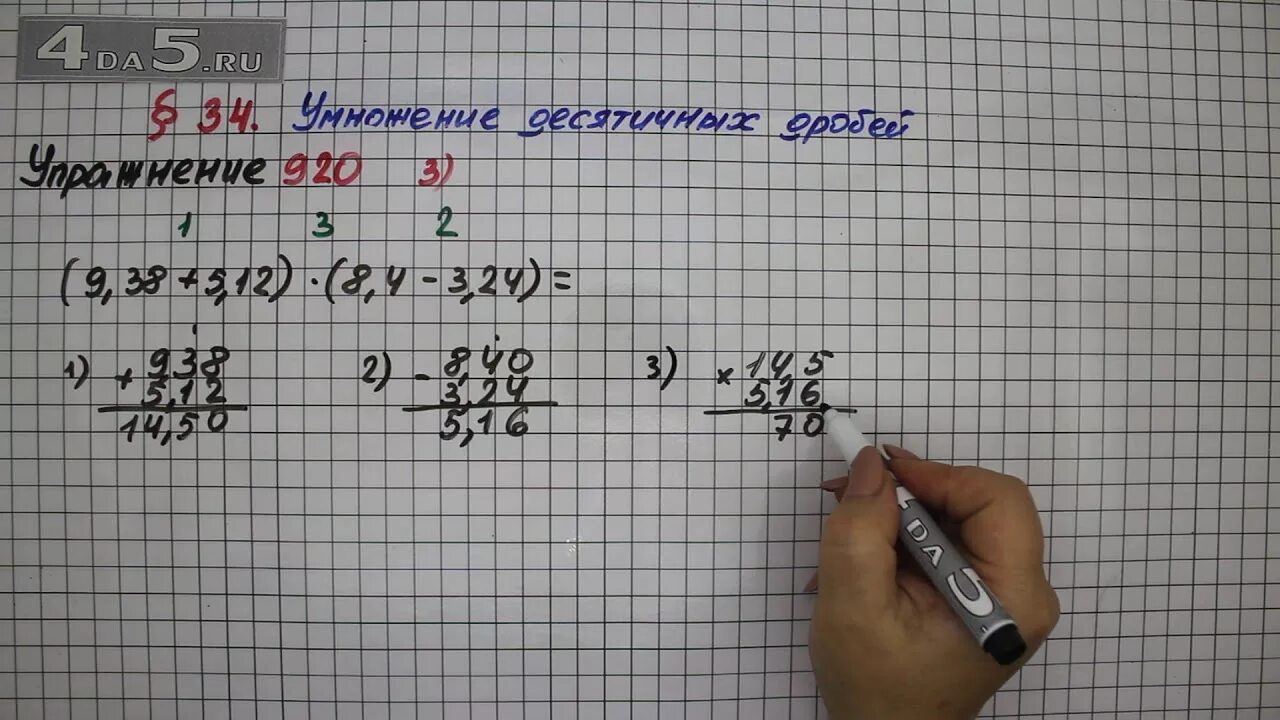 4DA5.RU
§ 34. Умножение десятичных дробей
Упражнение 920 3)
1 3 2
(9,38 + 5,12) · (8,4 - 3,24) =
1) + 9,38
5,12
14,50
2) - 8,40
3,24
5,16
3) × 14,5
5,16
70
4 DA 5